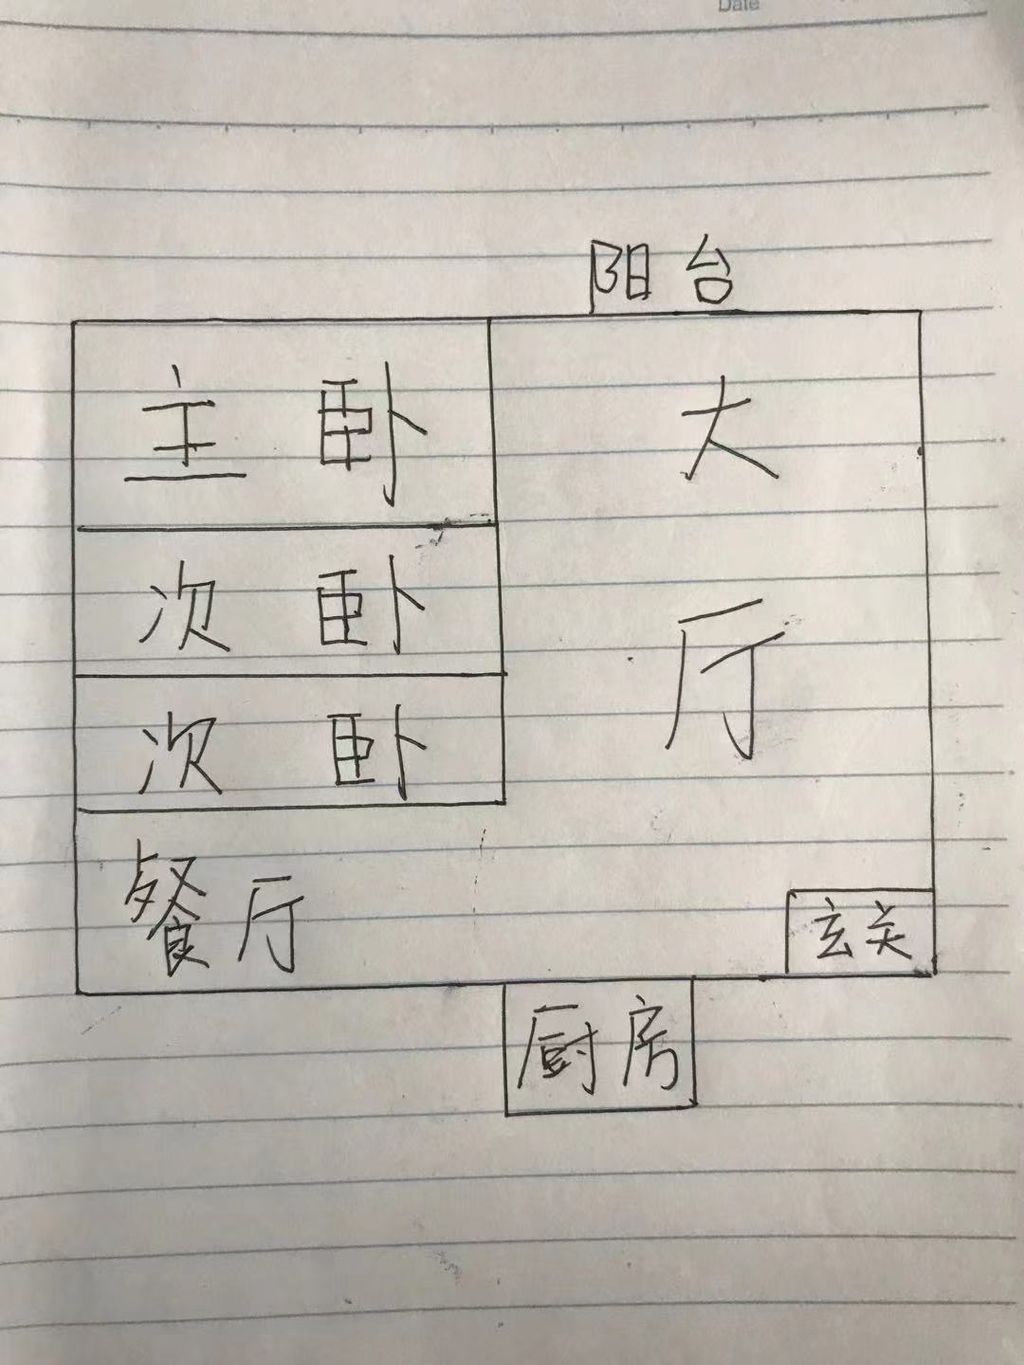 Date
阳台
主卧
大厅
次卧
次卧
餐厅
玄关
厨房